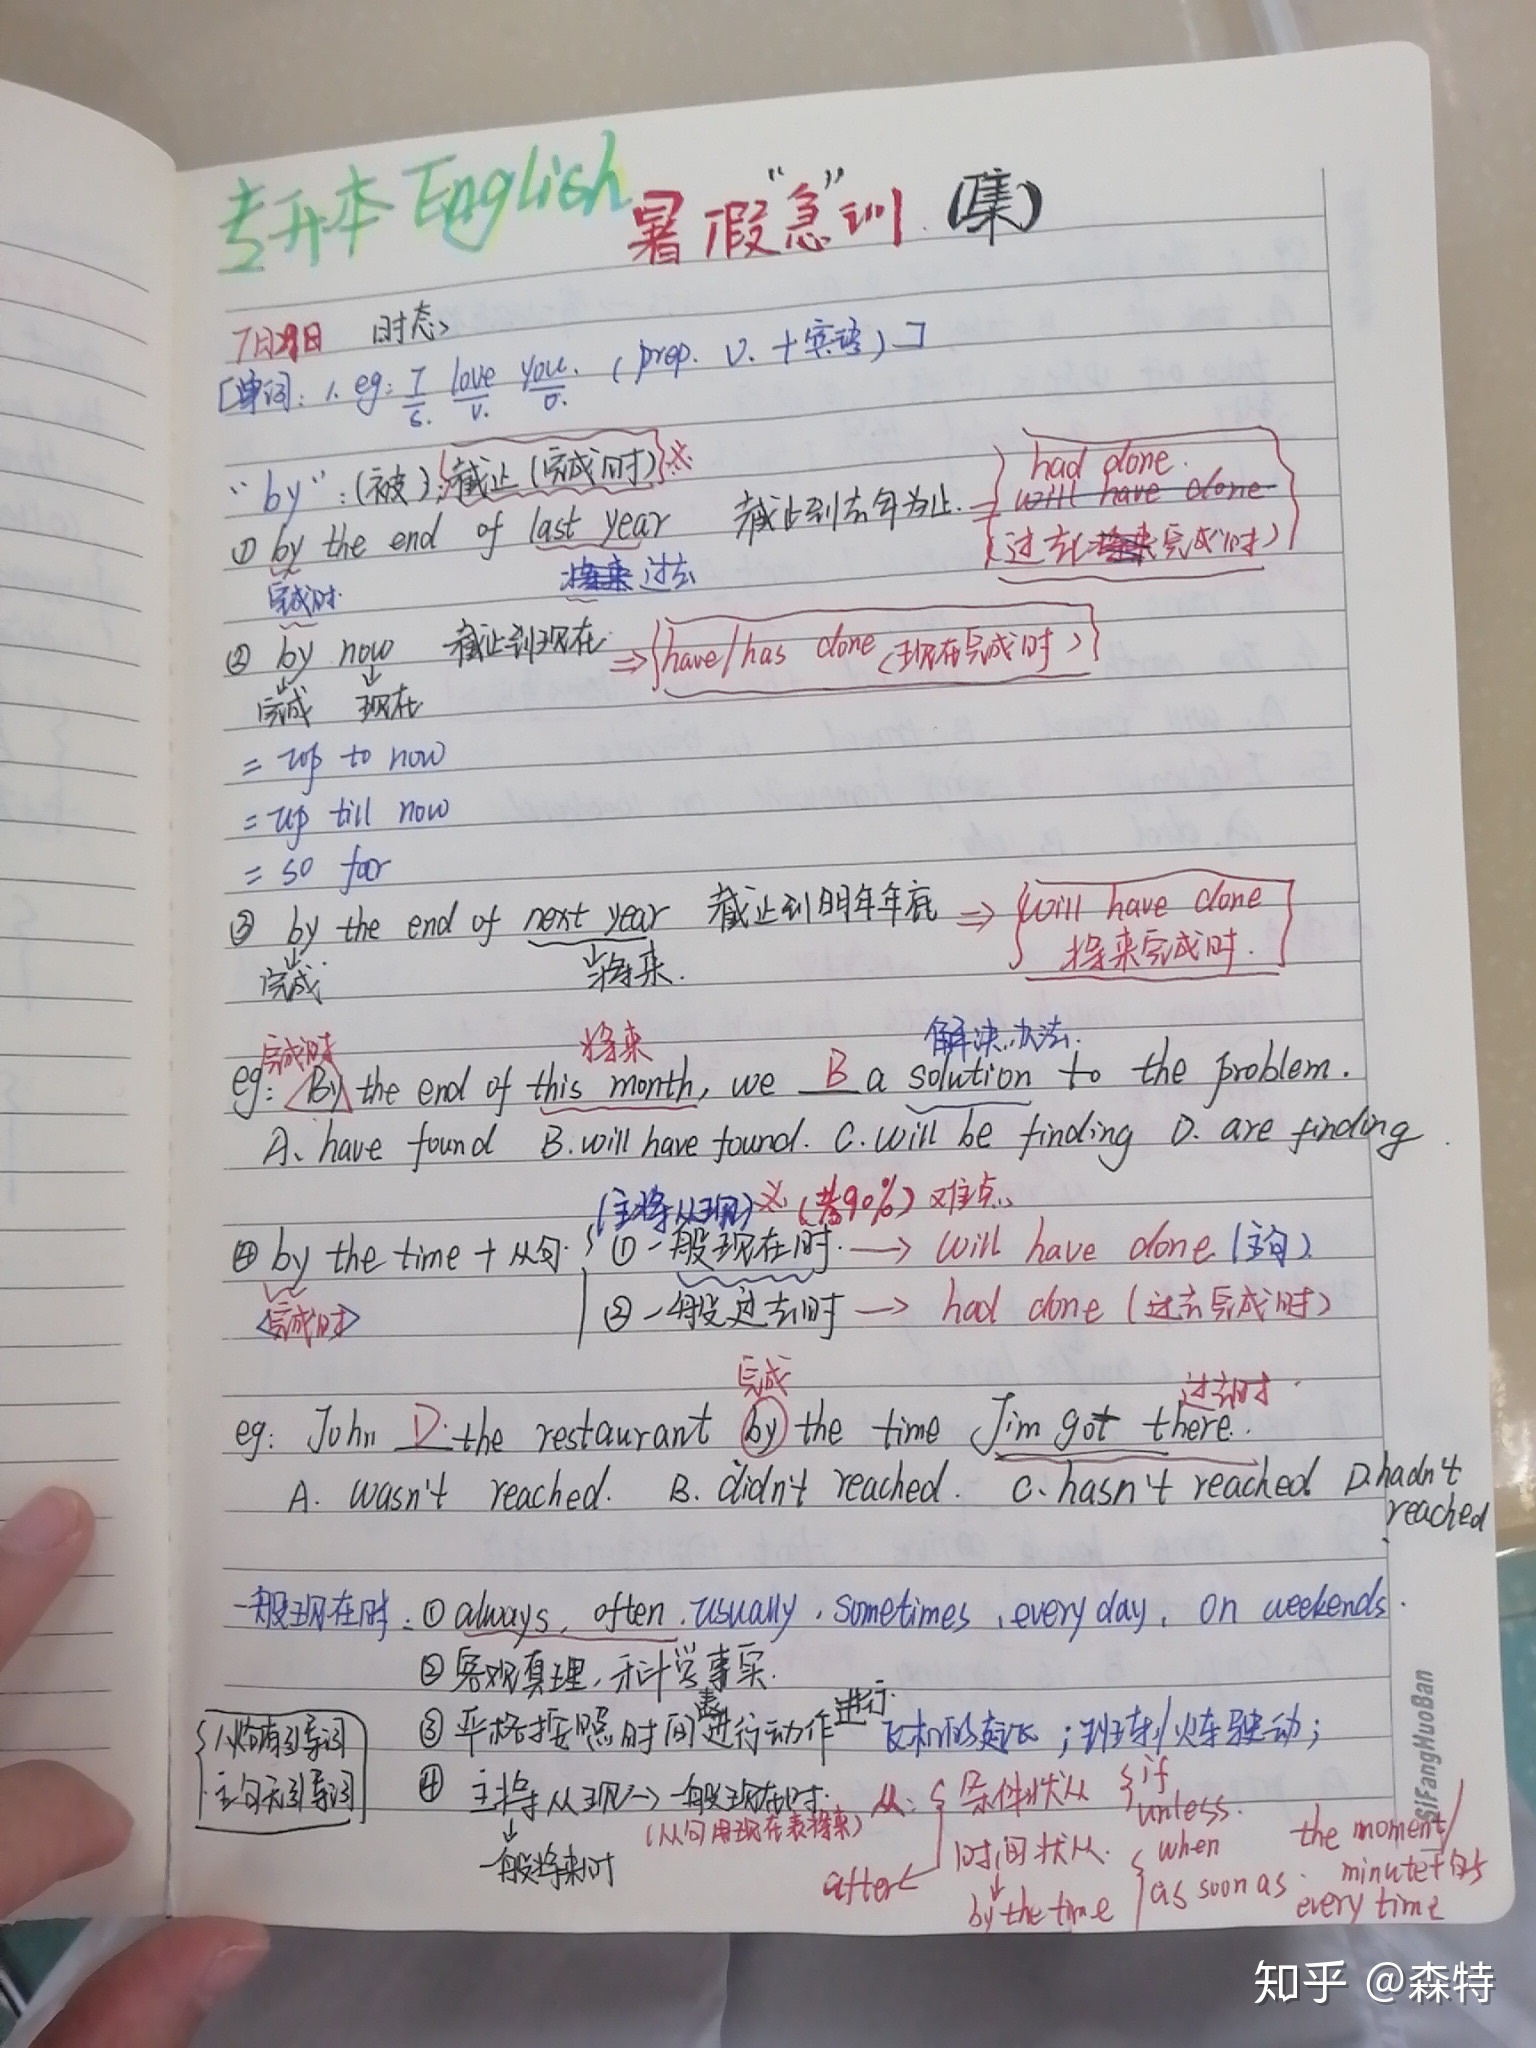 专升本 English 暑假"急"训 (集)
7月29日 时态
[单词: 1. eg: I love you. (prep. v. + 宾语)]
s. v. o.
"by": (被); 截止 (完成时) ※
had done.
will have done
① by the end of last year 截止到去年为止. ⇒ (过去将来完成时)
完成时 将来 过去
② by now 截止到现在 ⇒ have/has done (现在完成时)
完成 现在
= up to now
= up till now
= so far
③ by the end of next year 截止到明年年底 ⇒ will have done
完成 将来. 将来完成时.
完成时 将来 解决办法.
eg: By the end of this month, we B a solution to the problem.
A. have found B. will have found. C. will be finding D. are finding.
(主将从现) ※ (考90%) 难点
④ by the time + 从句. ① 一般现在时. → will have done (主句)
<完成时> ② 一般过去时 → had done (过去完成时)
完成 过去时.
eg: John D. the restaurant by the time Jim got there.
A. wasn't reached. B. didn't reached. C. hasn't reached D. hadn't
reached
一般现在时: ① always, often, usually, sometimes, every day, on weekends.
② 客观真理, 科学事实.
③ 严格按照时间表进行动作 进行 飞机的起飞; 班车/火车驶动;
从句有引导词
主句无引导词
④ 主将从现 → 一般现在时. 从: 条件状从 if
unless.
(从句用现在表将来)
一般将来时
时间状从. when the moment/
minute+句
after by the time as soon as. every time
SiFangHuoBan
知乎 @森特